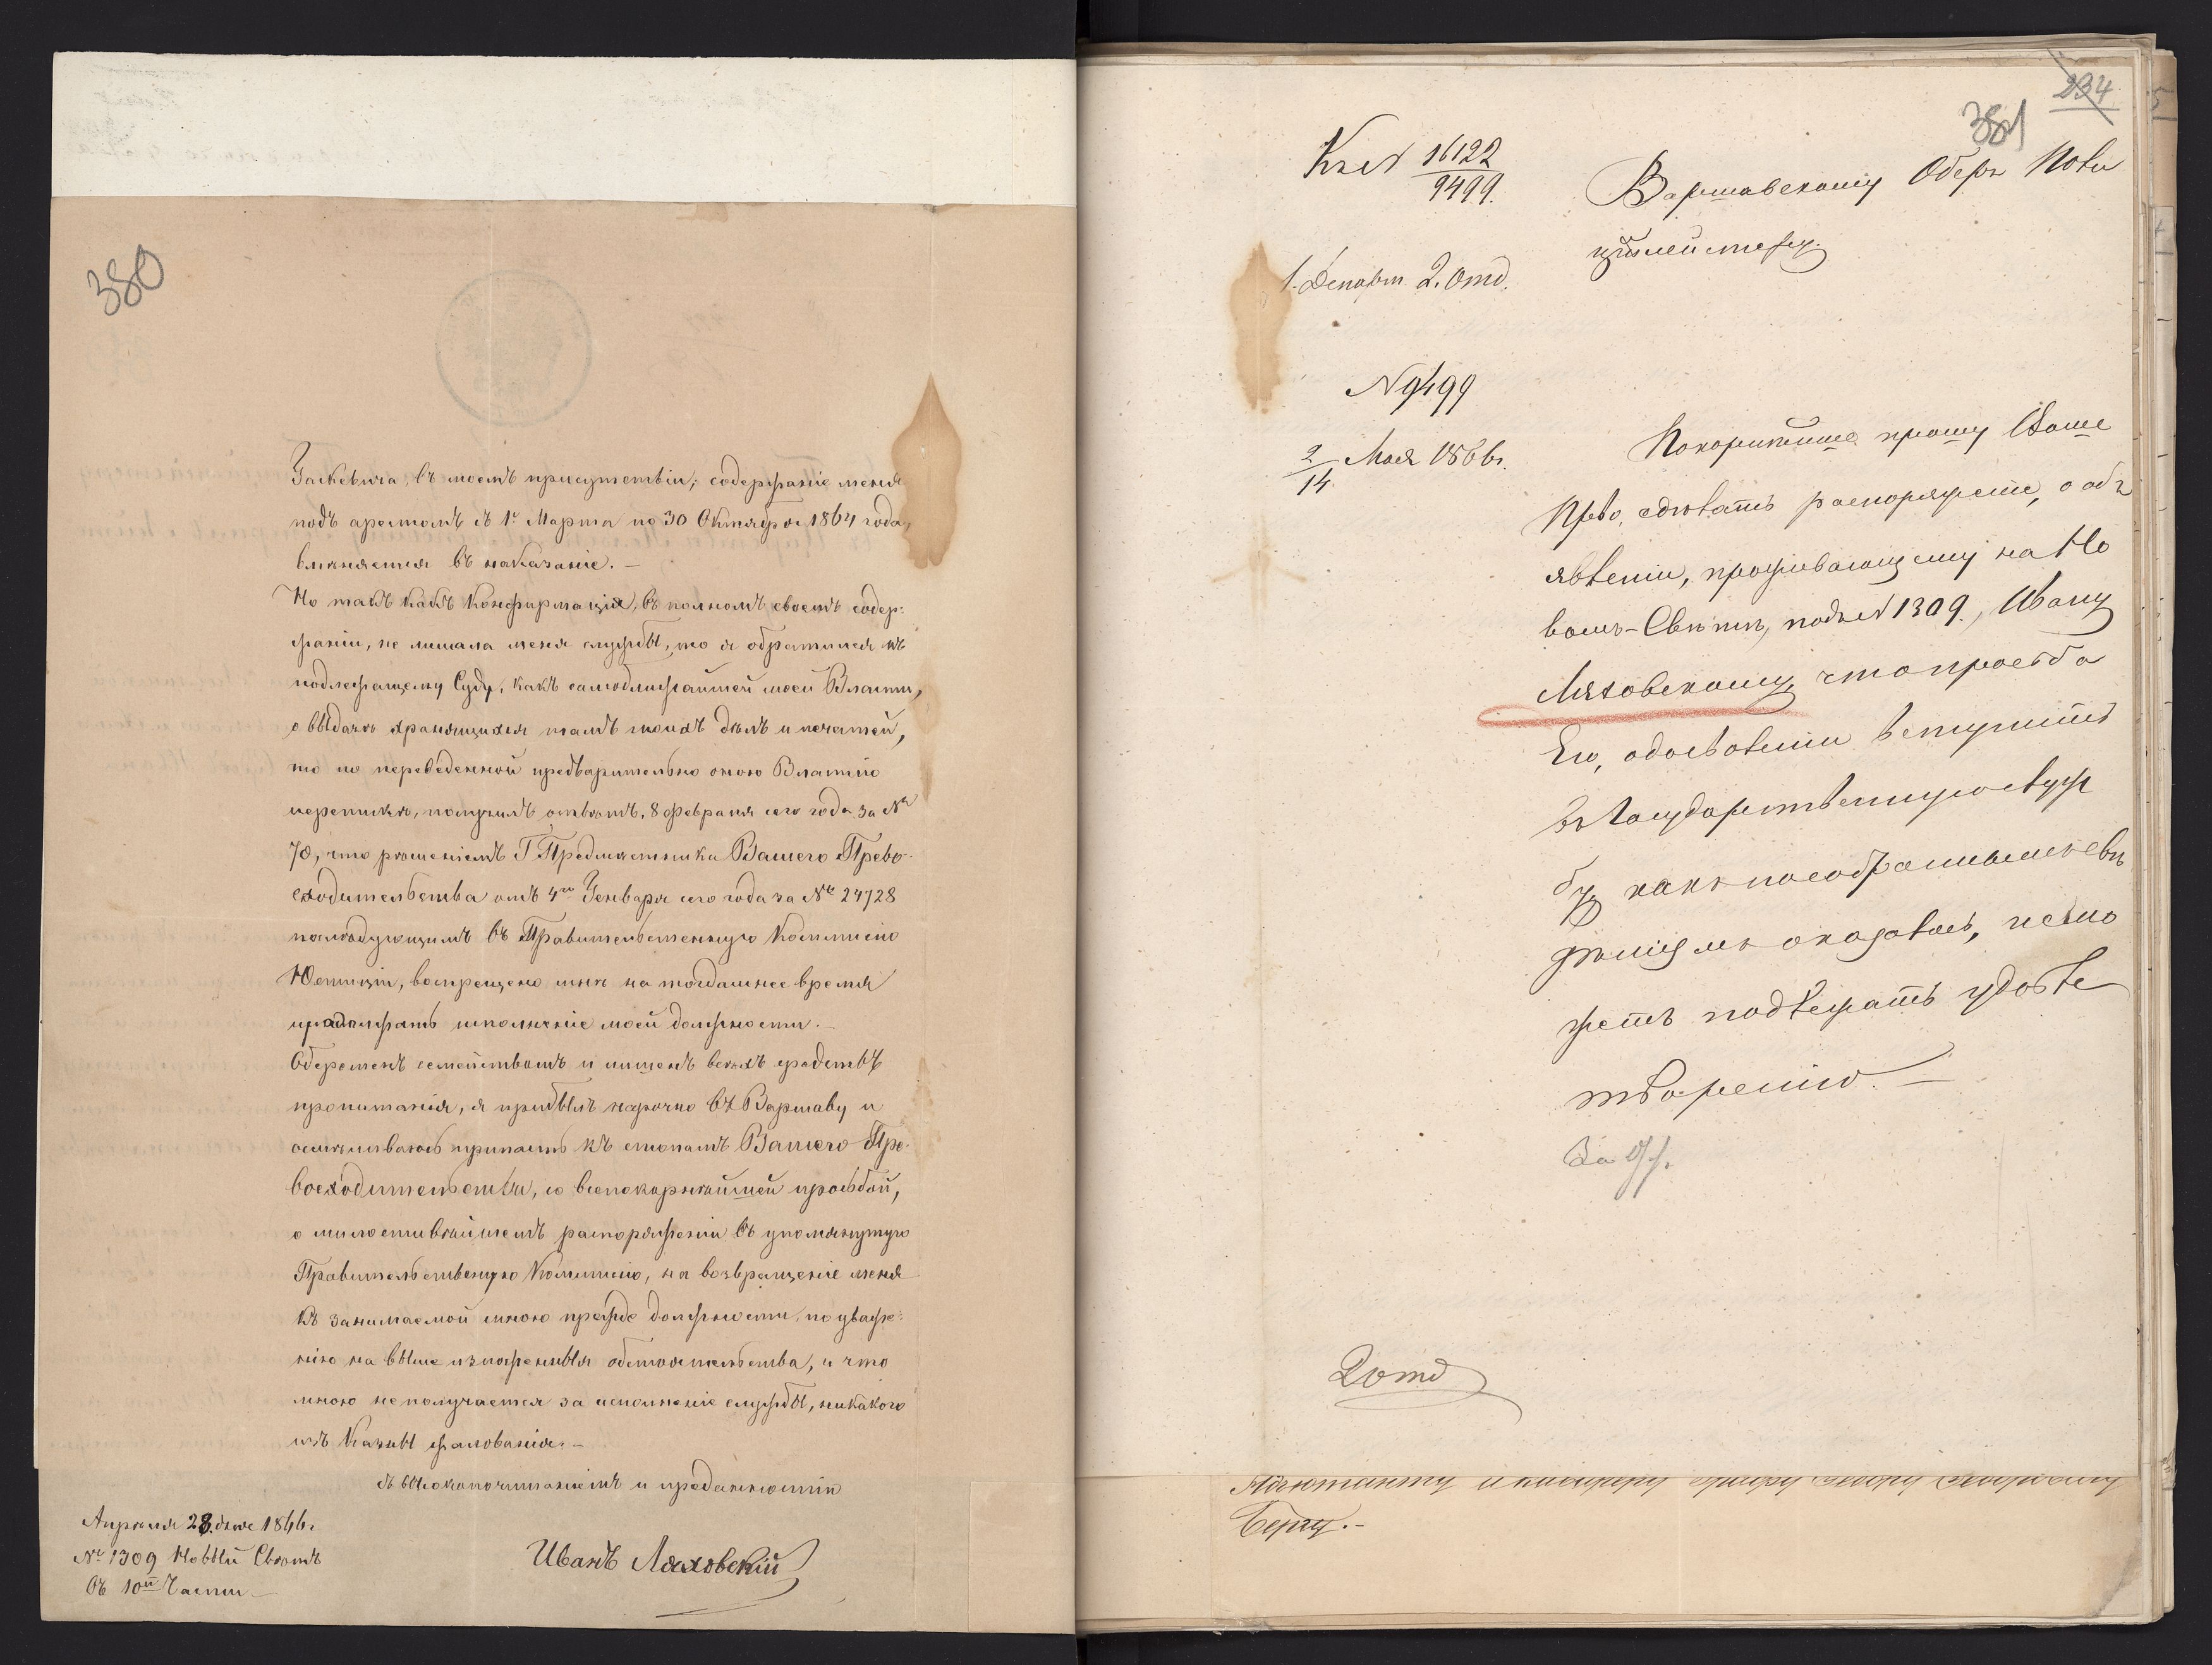 380
Заткевича, въ моемъ присутствіи; содержаніе меня
подъ арестомъ съ 1го Марта по 30 Октября 1864 года,
вмѣняется въ наказаніе. —
Но такъ какъ Конфирмація, въ полномъ своемъ содер-
жаніи, не лишала меня службы, то я обратился къ
подлежащему Суду, какъ самоближайшей моей Власти,
о выдачѣ хранящихся тамъ моихъ дѣлъ и печатей,
то по переведенной предварительно оною Властію
перепискѣ, получилъ отвѣтъ, 8 февраля сего года за №
70, что рѣшеніемъ Г. Предмѣстника Вашего Прево-
сходительства отъ 4го Генваря сего года за № 24728
послѣдующимъ въ Правительственную Коммисію
Юстиціи, воспрещено мнѣ на тогдашнее время
продолжать исполненіе моей должности. —
Обремененъ семействомъ и лишенъ всѣхъ средствъ
пропитанія, я прибылъ нарочно въ Варшаву и
осмѣливаюсь припасть къ стопамъ Вашего Пре-
восходительства, со всепокорнѣйшей просьбой,
о милостивѣйшемъ распоряженіи въ упомянутую
Правительственную Коммисію, на возвращеніе меня
къ занимаемой мною прежде должности, по уваже-
нію на выше изложенныя обстоятельства, и что
мною не получается за исполненіе службы, никакого
изъ Казны жалованія. —
Съ высокопочитаніемъ и преданностію
Иванъ Ляховскій
Апрѣля 28. дня 1866 г.
№ 1309 Новый Свѣтъ
въ 10й Части —
234
381
Къ № 16122
9499.
1. Департ. 2. Отд.
№ 9499
2/14 Мая 1866 г.
Варшавскому Оберъ Поли
цiймейстеру.
Покорнѣйше прошу Ваше
Прево, сдѣлать распоряженіе, о объ
явленіи, проживающему на Но
вомъ-Свѣтѣ, подъ № 1309., Ивану
Ляховскому, что просьба
Его, о дозволеніи вступить
въ Государственную служ
бу, какъ по собраннымъ свѣ
дѣніямъ оказалось, не мо
жетъ подлежать удовле
творенію. —
2 отд
Адъютанту и кавалеру графу Ѳедору Ѳедоровичу
Бергу. —